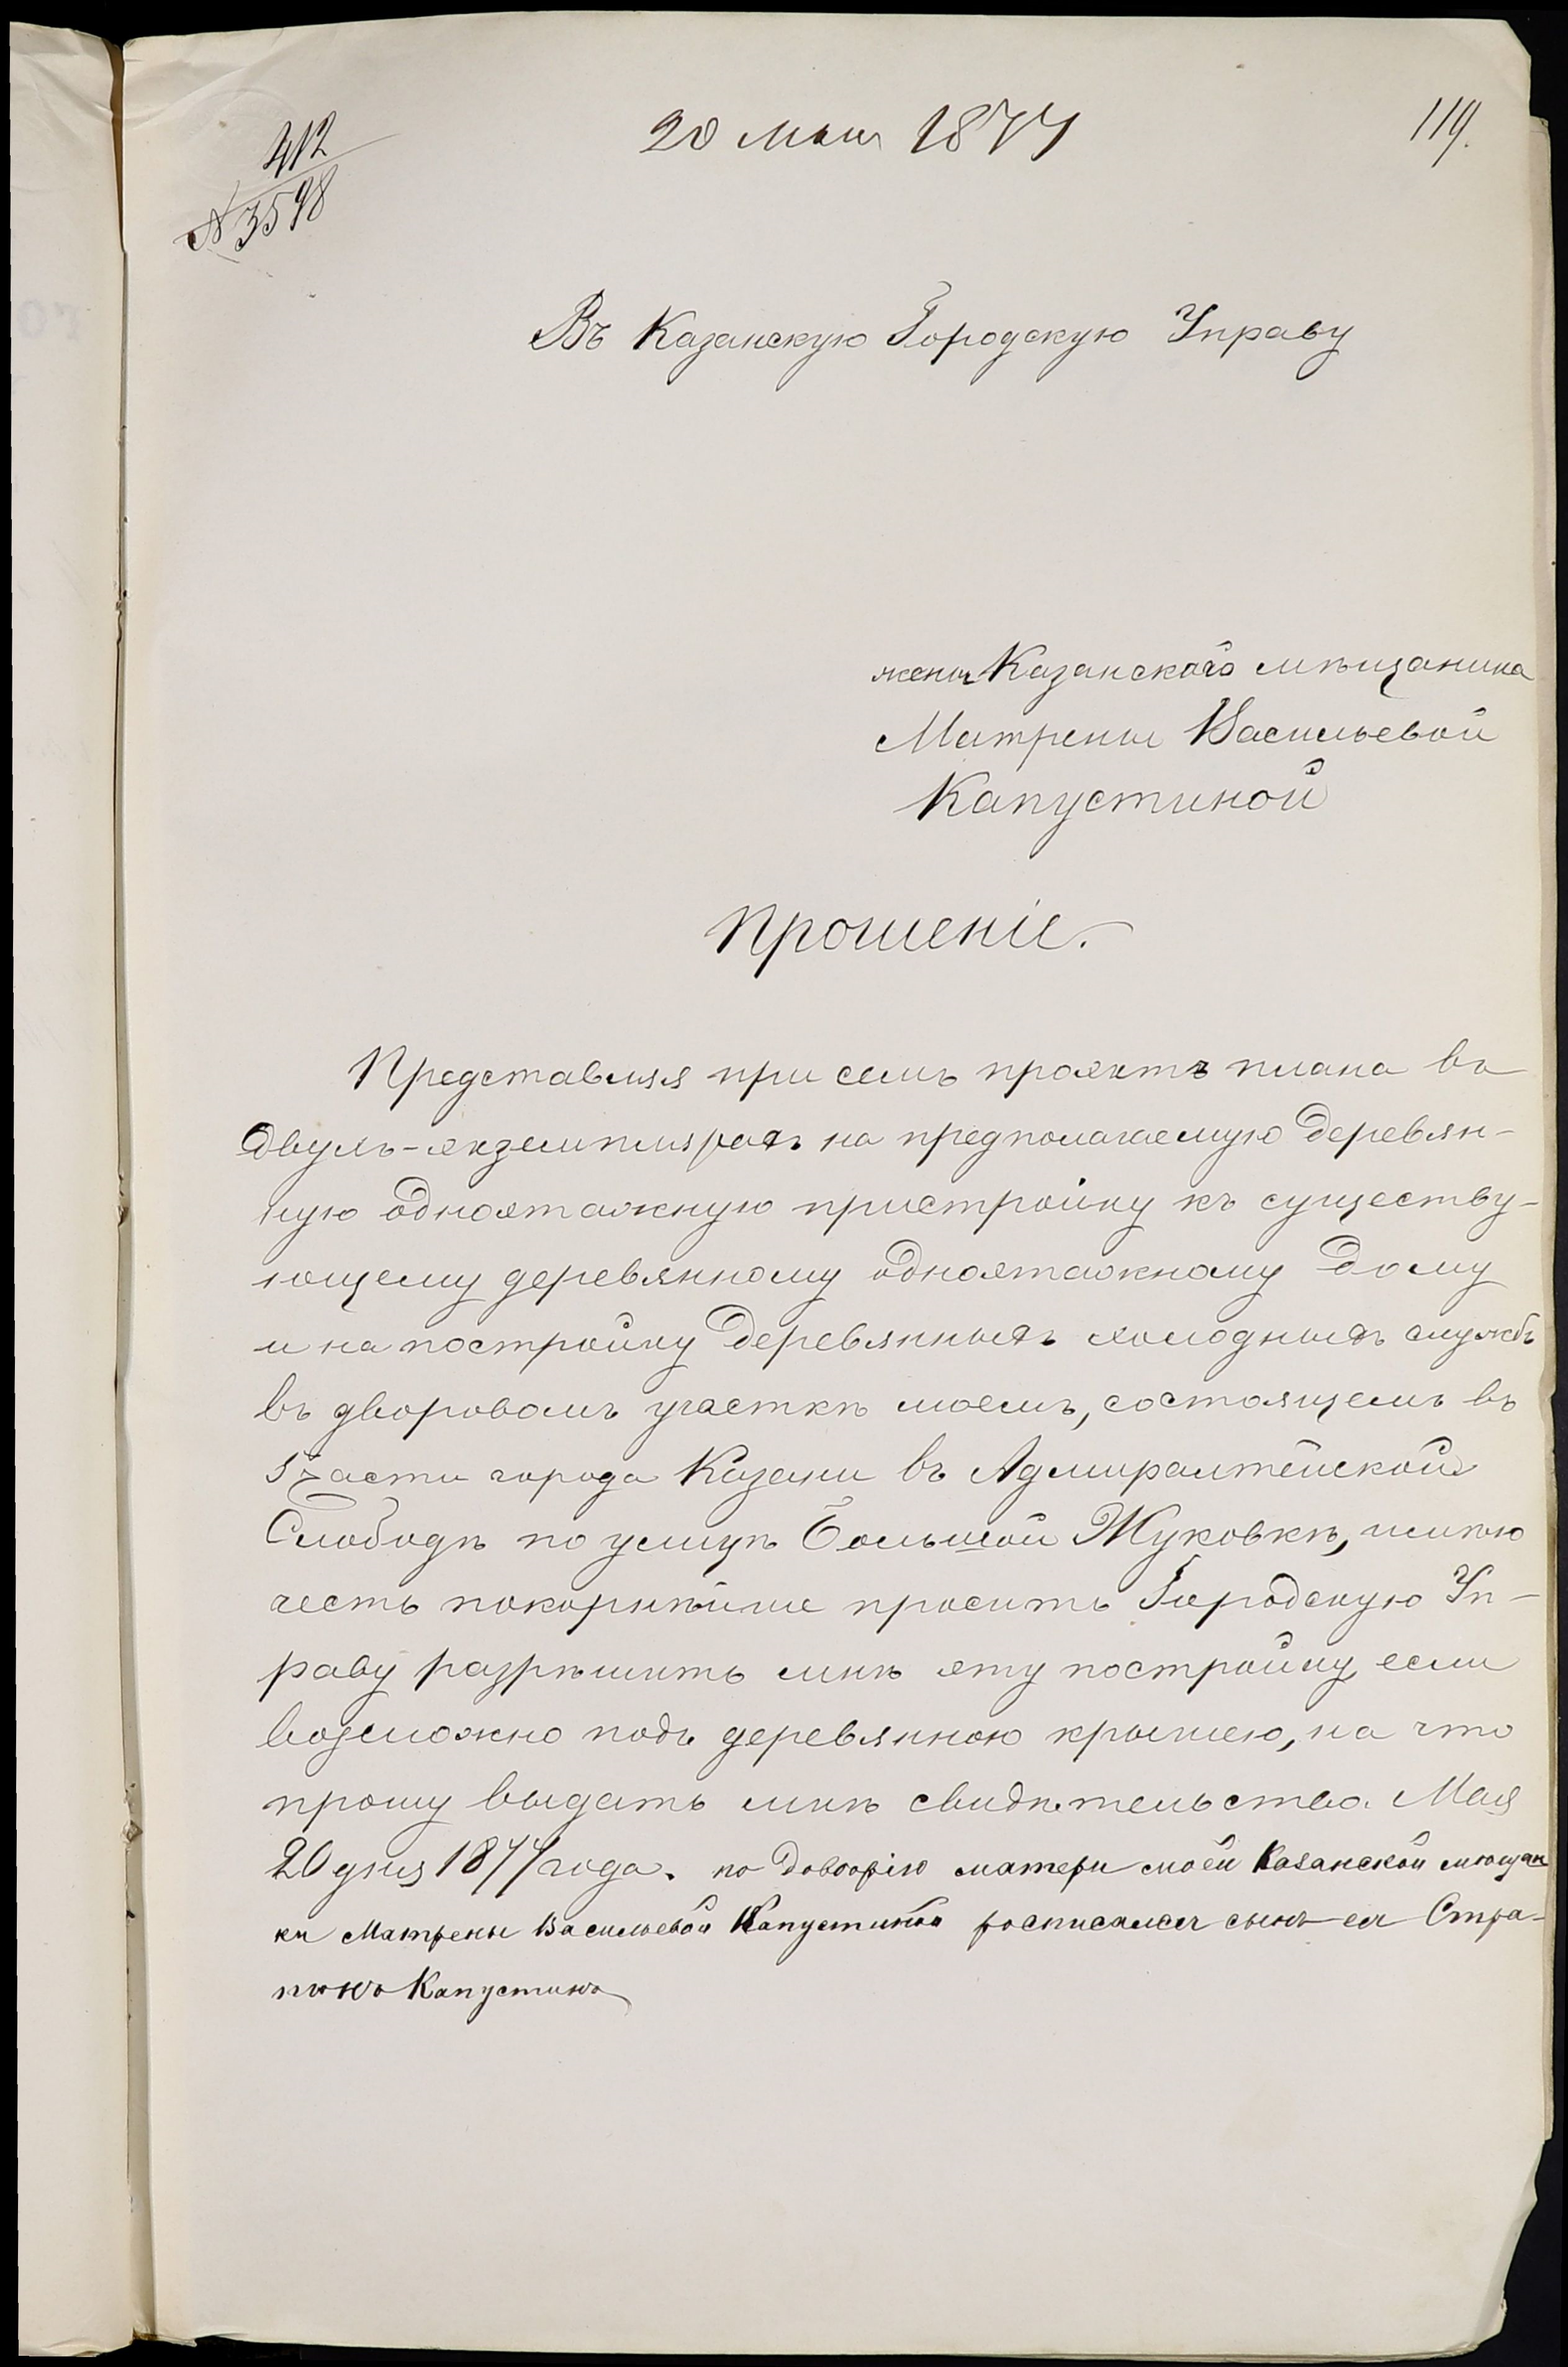 412
№ 3598
20 мая 1877
119.
Въ Казанскую Городскую Управу
жены Казанскаго мѣщанина
Матрены Васильевой
Капустиной
Прошеніе.
Представляя при семъ проэктъ плана въ
двухъ-экземплярахъ на предполагаемую деревян-
ную одноэтажную пристройку къ существу-
ющему деревянному одноэтажному дому
и на постройку деревянныхъ холодныхъ службъ
въ дворовомъ участкѣ моемъ, состоящемъ въ
5 части города Казани въ Адмиралтейской
Слободѣ по улицѣ Большой Жуковкѣ, имѣю
честь покорнѣйше просить Городскую Уп-
раву разрѣшить мнѣ эту постройку, если
возможно подъ деревянною крышею, на что
прошу выдать мнѣ свидѣтельство. Мая
20 дня 1877 года. по довѣрію матери моей Казанской мѣщан
ки Матрены Васильевой Капустиной росписался сынъ ея
Капустинъ